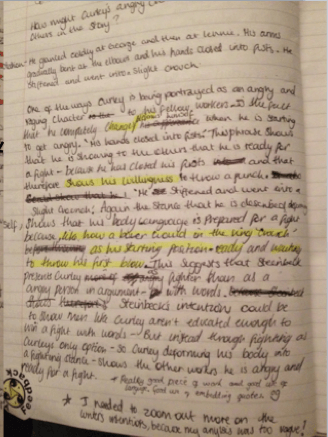 How might Curley's angry
others in the story?
He glanced coldly at George and then at Lennie. His arms
gradually bent at the elbows and his hands closed into fists. He
stiffened and went into a slight crouch.
One of the ways Curley is being portrayed as an angry and
to his fellow workers is the fact
that he completely himself when he is starting
to get angry. "His hands closed into fists." This phrase shows
that he is showing to the others that he is ready for
a fight - because he has closed his fists and that
therefore shows his willingness to throw a punch.
"He stiffened and went into a
slight crouch." Again the stance that he is
shows that his body language is prepared for a fight
because like how a boxer would in the ring 'crouch'
as his starting position - ready and waiting
to throw his first blow. This suggests that Steinbeck
presents Curley fighter than as a
angry person in argument with words.
Steinbeck's intention could be
to show men like Curley aren't educated enough to
win a fight with words - But instead through fighting as
Curley's only option - so Curley deforming his body into
a fighting stance - shows the other workers he is angry and
ready for a fight.
* Really good piece of work and good use of
language. Good use of embedding quotes
* I needed to zoom out more on the
writers intentions, because my analysis was too vague!